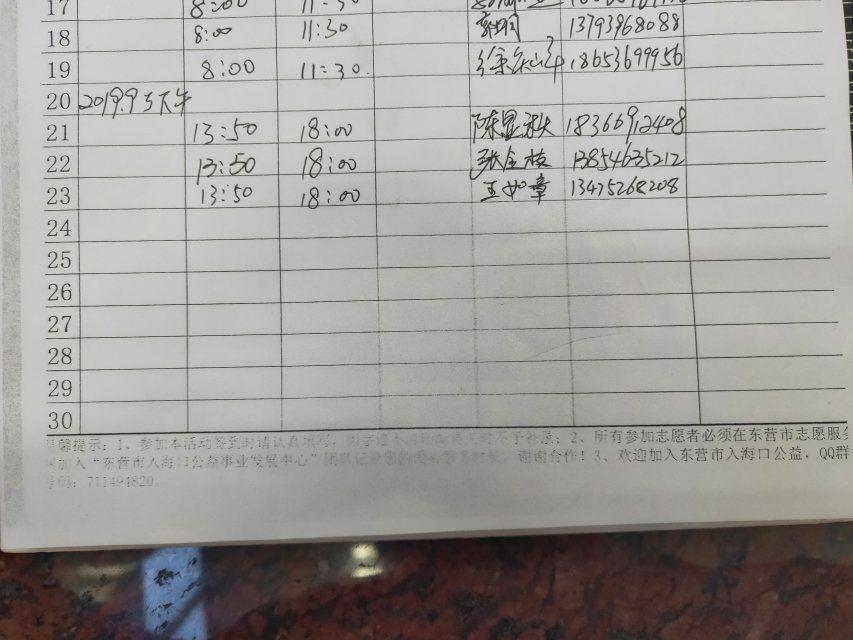 17 8:00 11:30
18 8:00 11:30 13793968088
19 8:00 11:30 18653699956
20 2019.9.5下午
21 13:50 18:00 陈显秋 18366912408
22 13:50 18:00 张全枝 13854635212
23 13:50 18:00 王如章 13475268208
24
25
26
27
28
29
30
馨提示:1、参加本活动签到时请认真填写,因字迹不清 不予补录;2、所有参加志愿者必须在东营市志愿服务
加入“东营市入海口公益事业发展中心”团队 谢谢合作!3、欢迎加入东营市入海口公益,QQ群
号码:711494820。